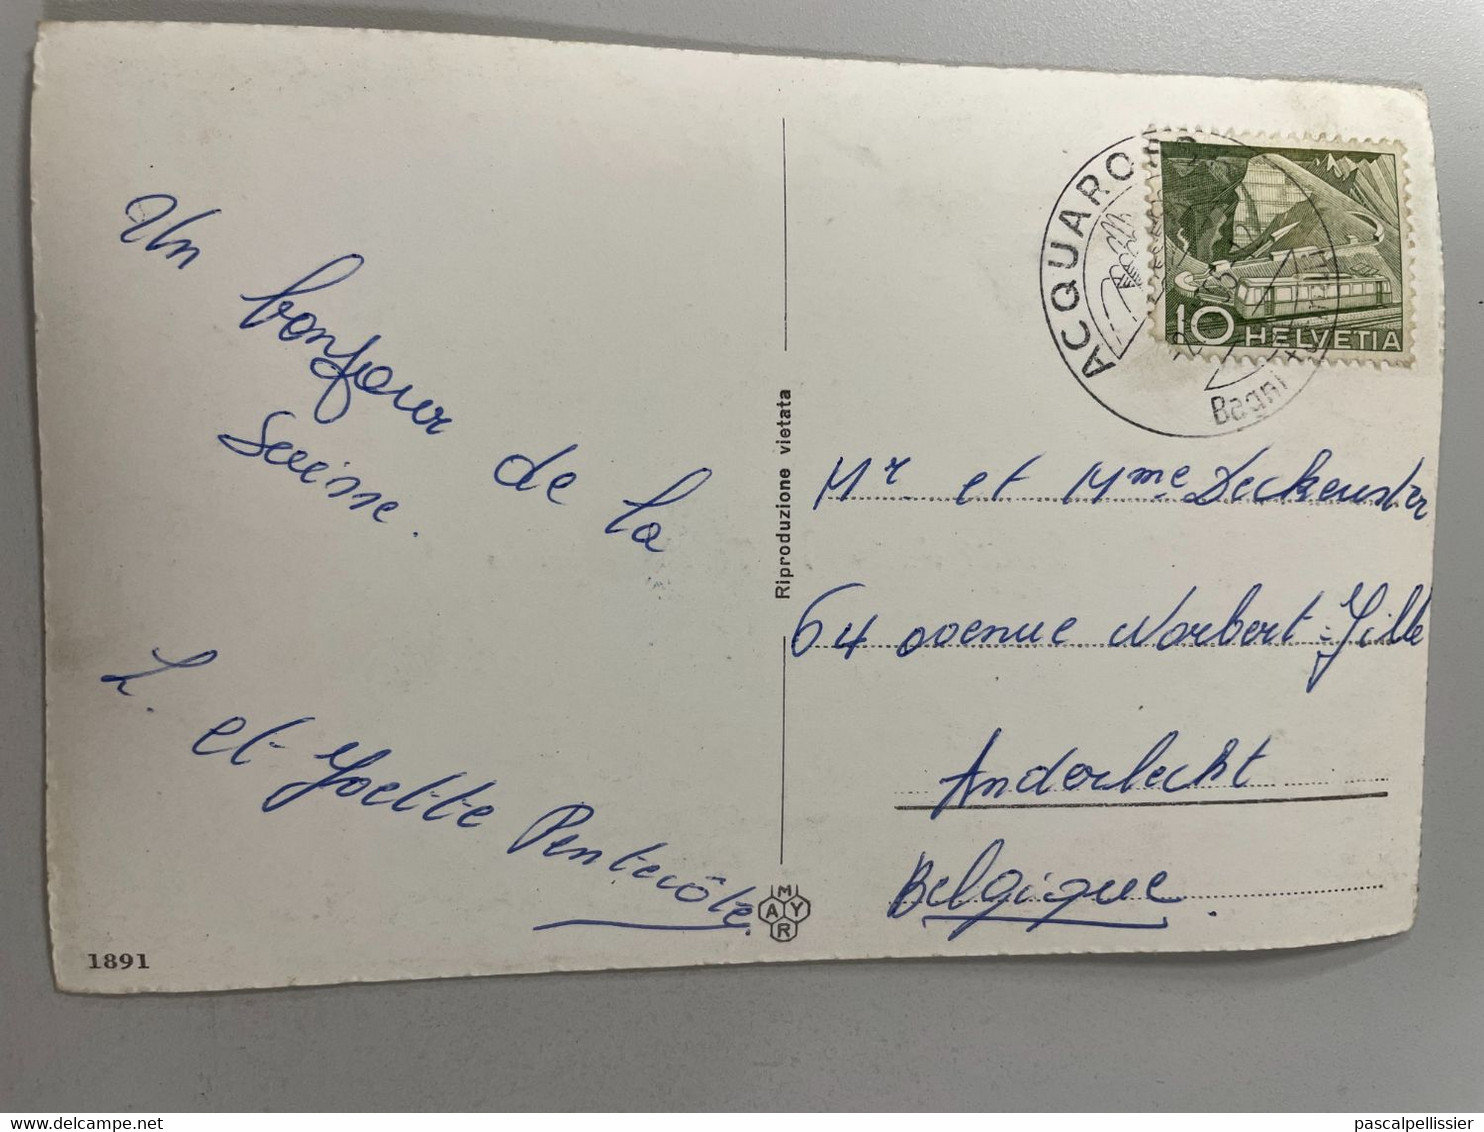 Un
bonjour
de la
Suisse.
L.
et Yvette Pentecôte.
1891
Riproduzione vietata
MAYR
ACQUARO
Bagni
10 HELVETIA
Mr. et Mme
64 avenue Norbert-Gille
Anderlecht
Belgique.
www.delcampe.net
pascalpellissier